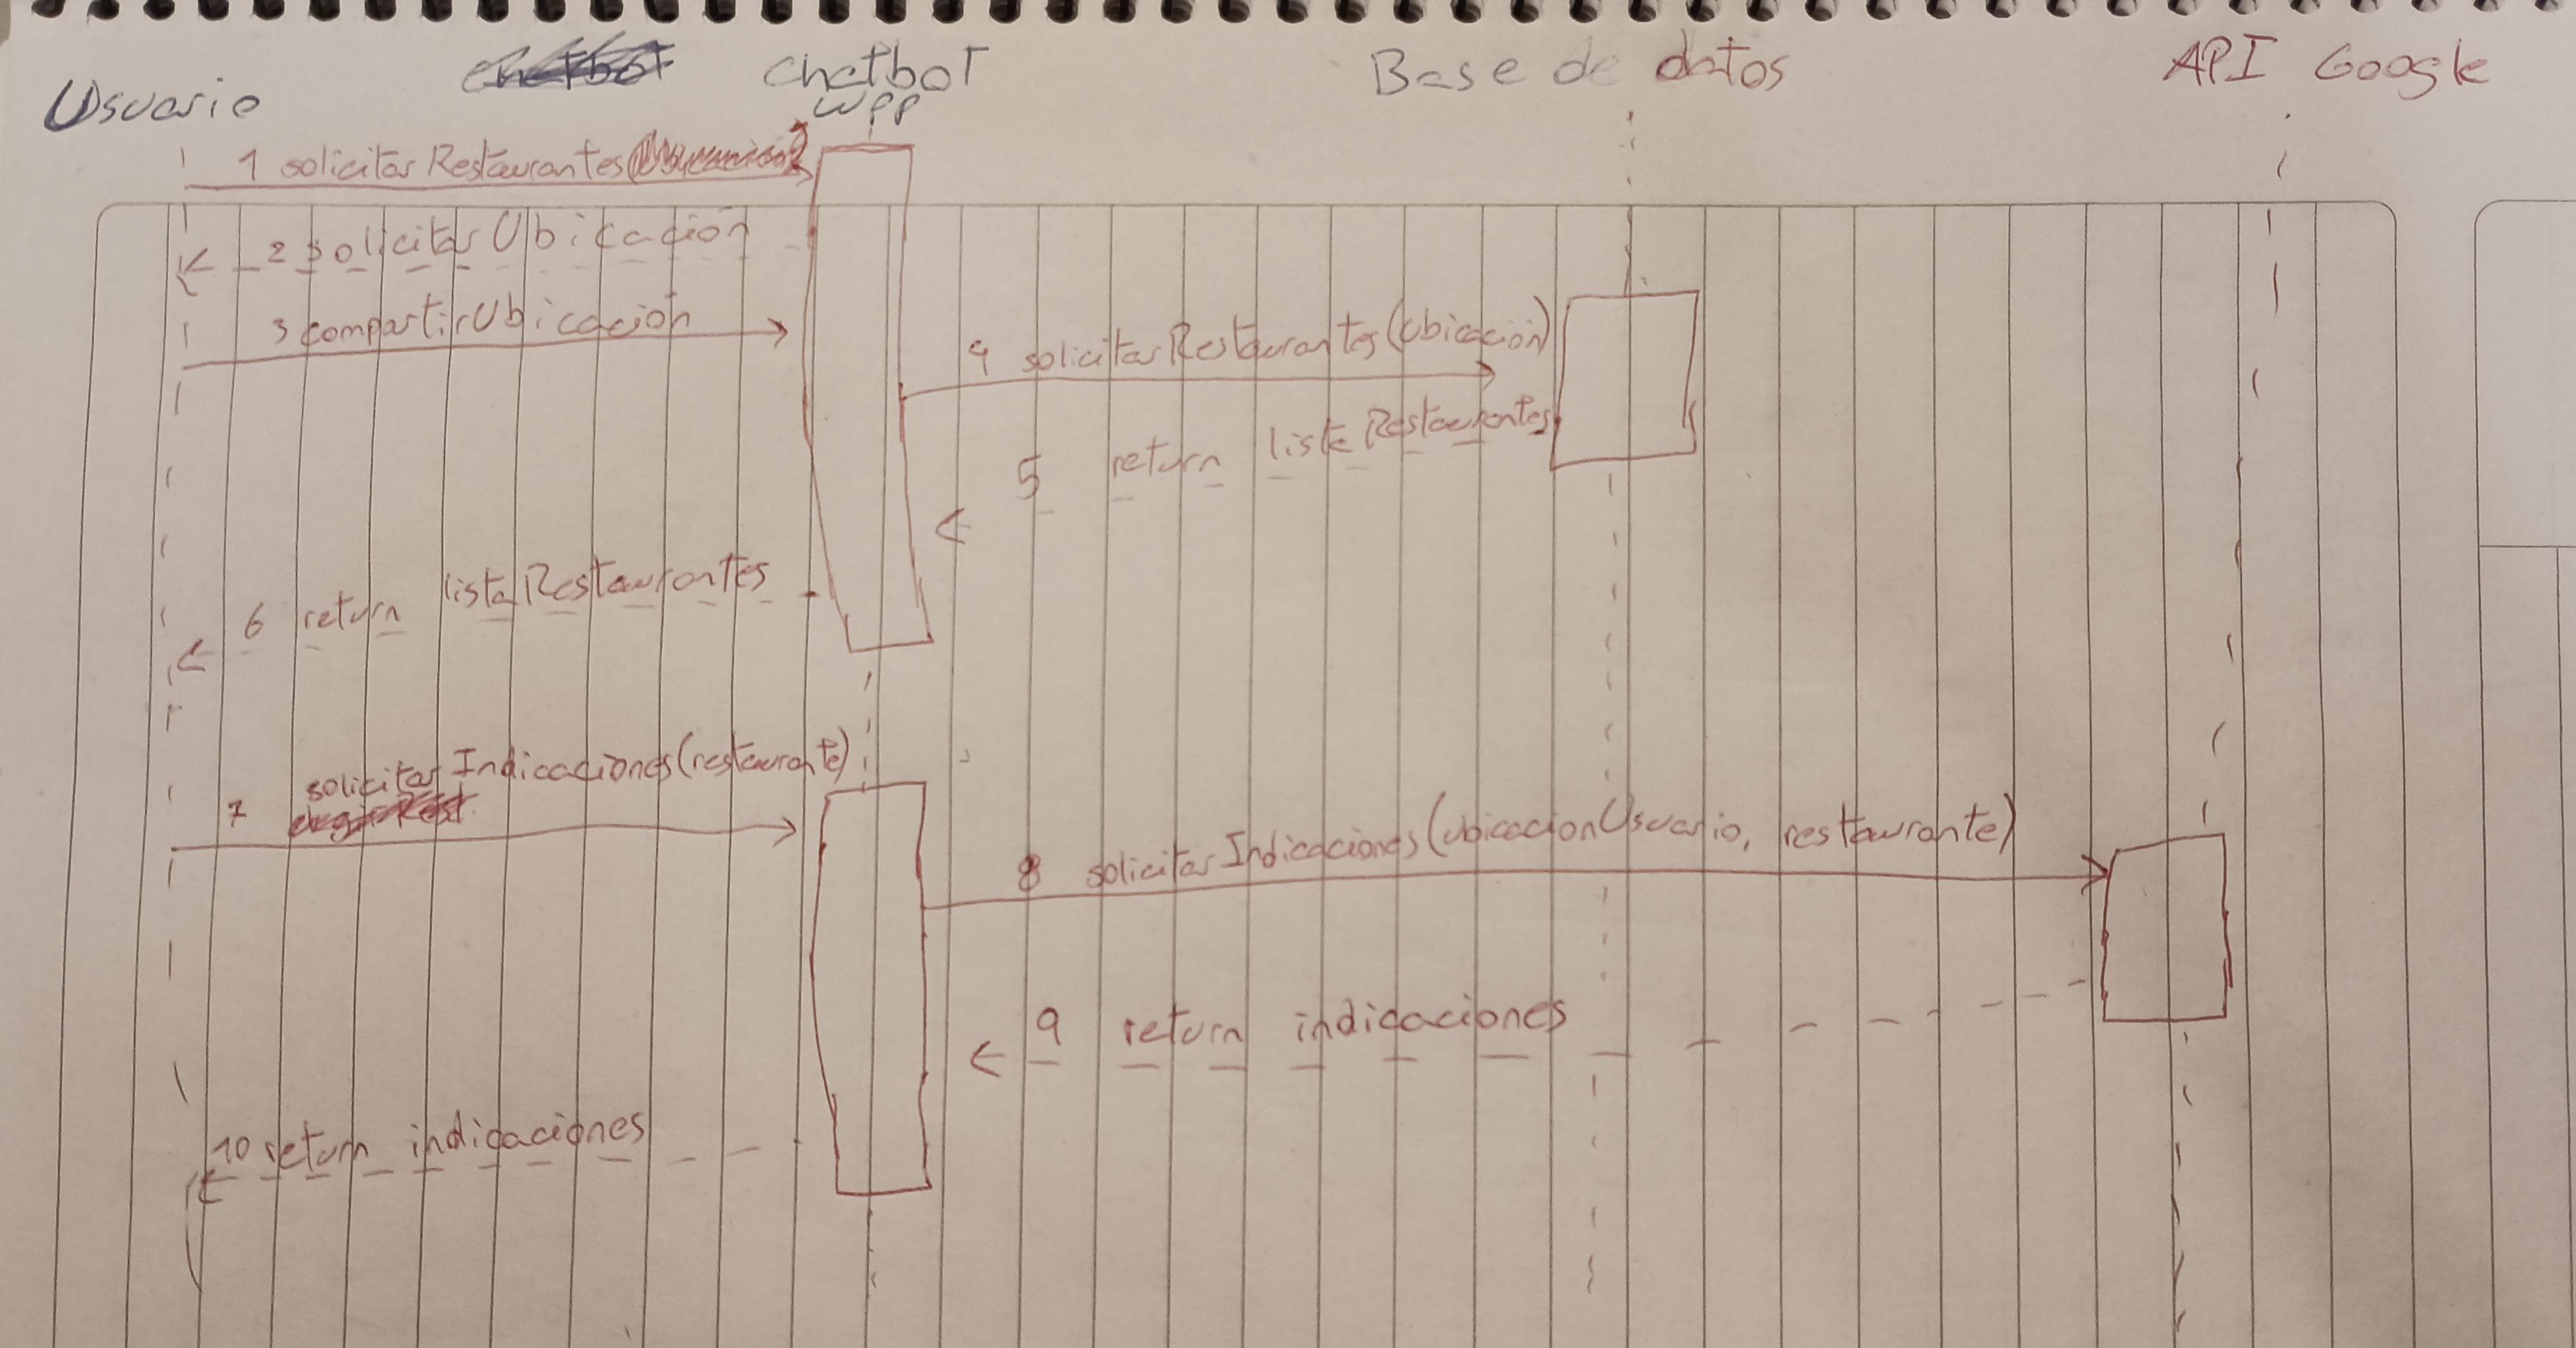 Usuario
Chatbot
Chatbot
wpp
Base de datos
API Google
1 solicitarRestaurantes
2 solicitarUbicación
3 compartirUbicación
4 solicitarRestaurantes(Ubicación)
5 return listaRestaurantes
6 return listaRestaurantes
7 solicitarIndicaciones(restaurante)
8 solicitarIndicaciones(ubicacionUsuario, restaurante)
9 return indicaciones
10 return indicaciones